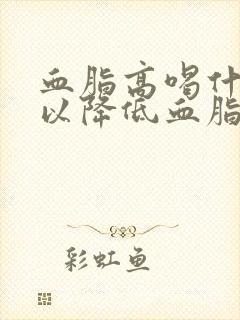 血脂高喝什
以降低血脂
彩虹鱼